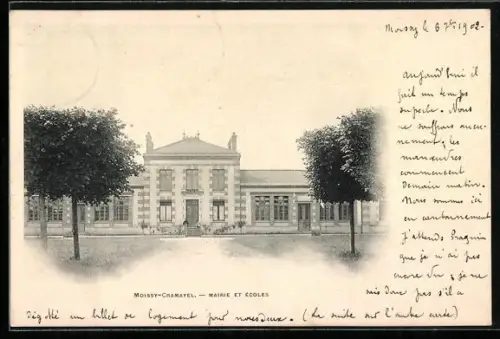 Moissy le 6 7bre 1902.
Aujourd'hui il
fait un temps
superbe. Nous
ne souffrons aucu-
nement, les
manœuvres
commencent
demain matin.
Nous sommes ici
en cantonnement
J'attends
que je n'ai pas
encore vu, je ne
sais donc pas s'il a
MOISSY-CRAMAYEL. — MAIRIE ET ÉCOLES
un billet de logement pour nous deux. (La suite sur l'autre carte)